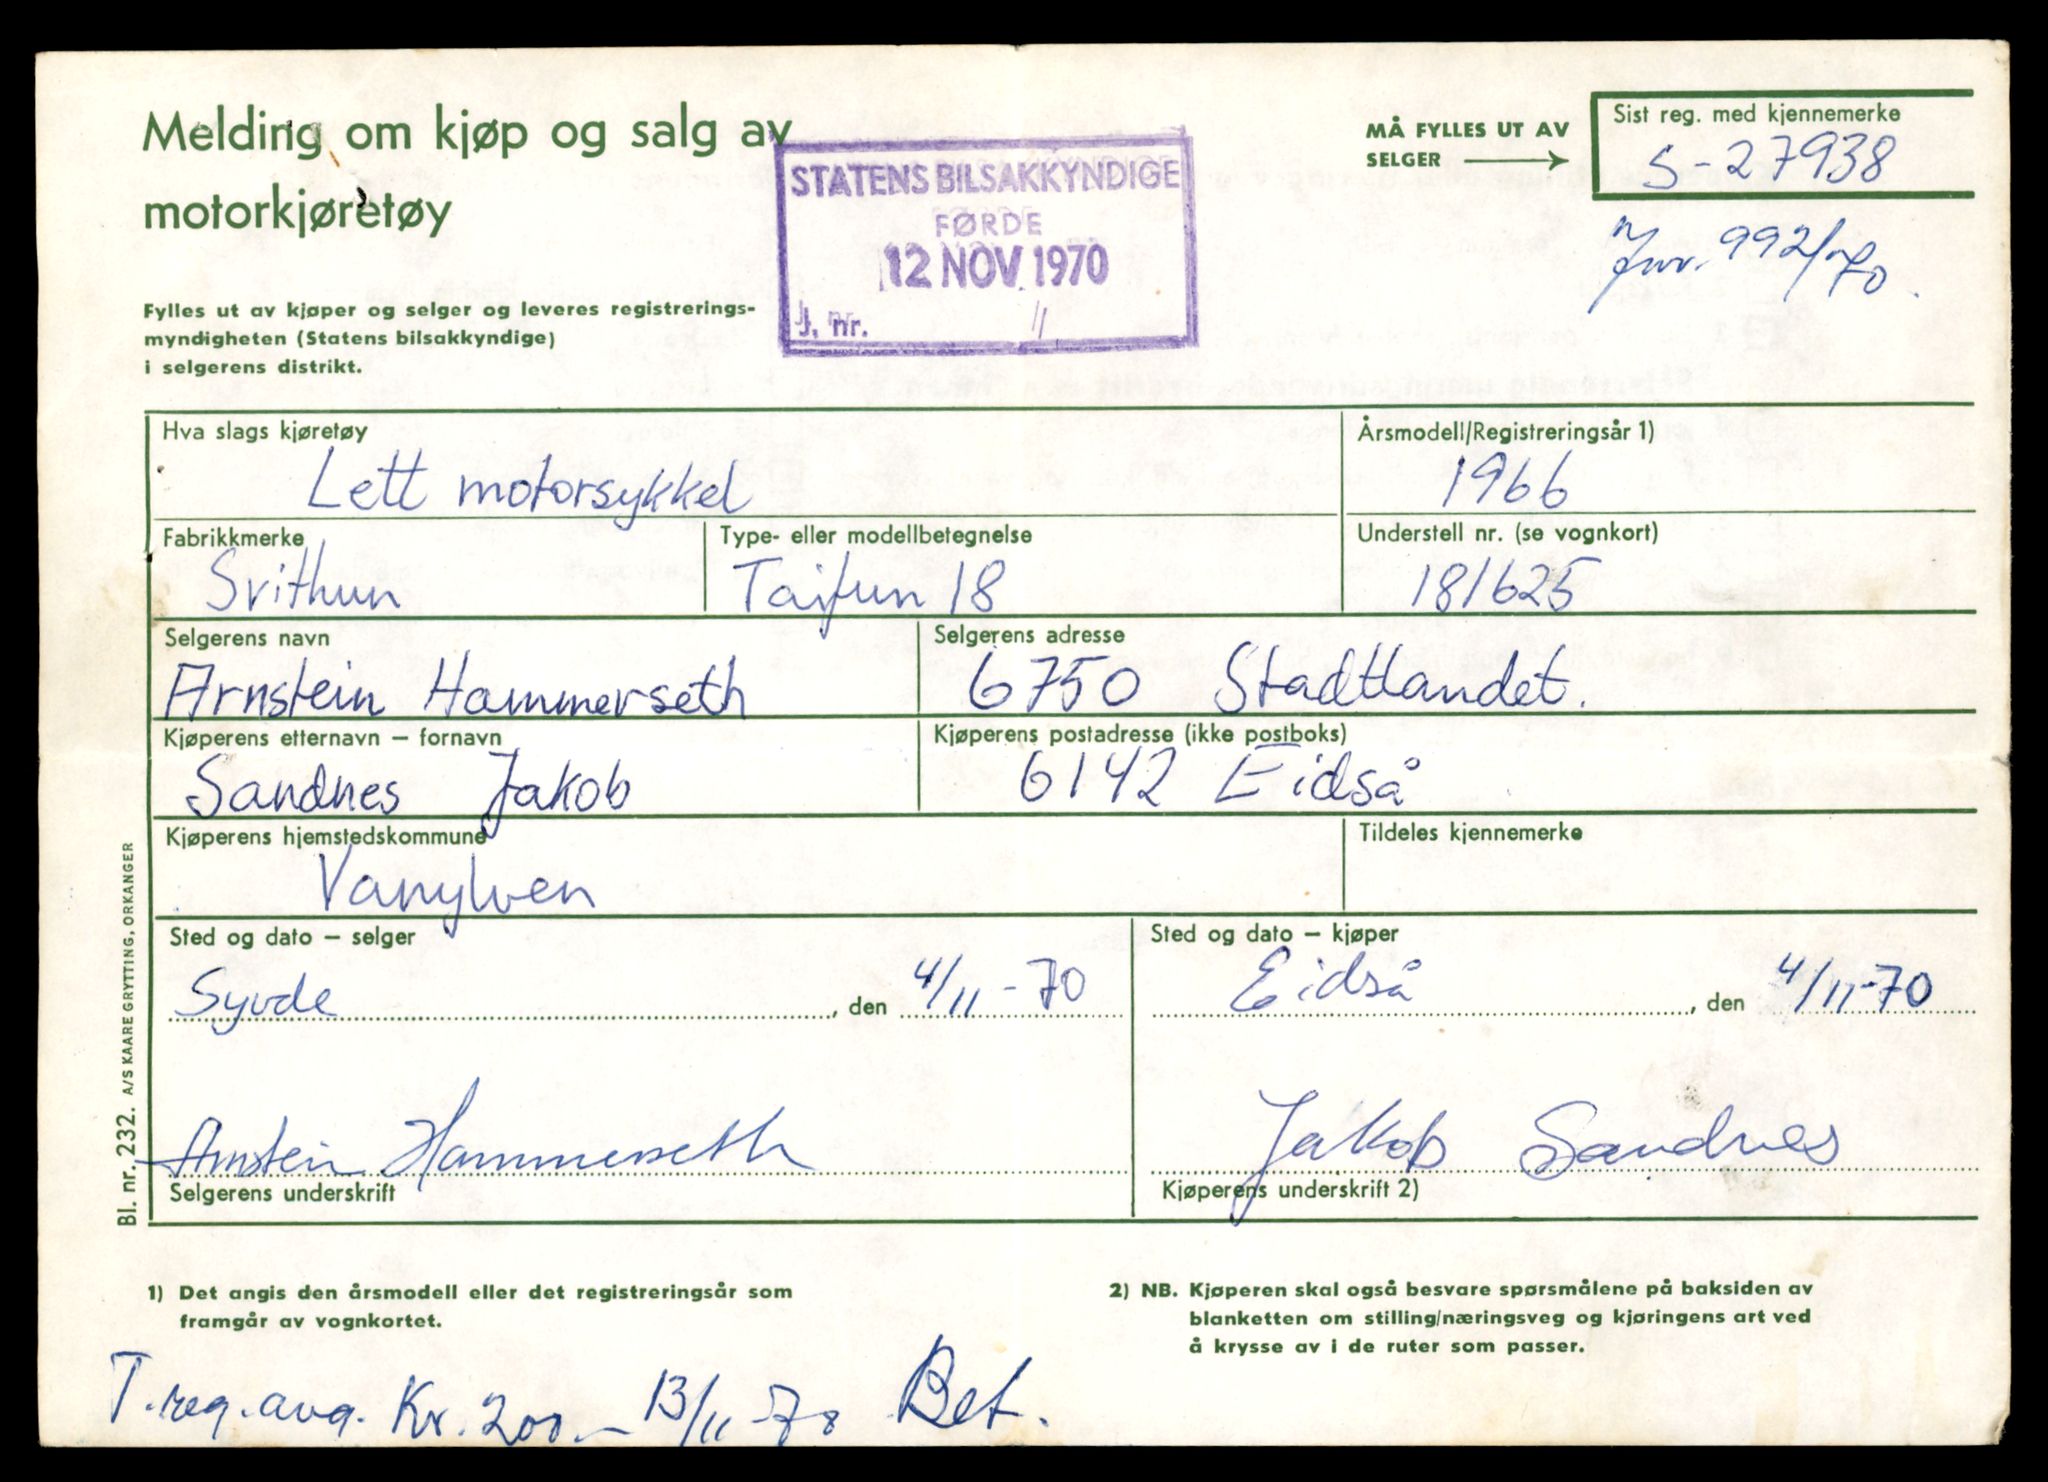 Melding om kjøp og salg av
motorkjøretøy
Fylles ut av kjøper og selger og leveres registrerings-
myndigheten (Statens bilsakkyndige)
i selgerens distrikt.
STATENS BILSAKKYNDIGE
FØRDE
12 NOV 1970
J. nr.
MÅ FYLLES UT AV
SELGER
Sist reg. med kjennemerke
S-27938
Jnr. 992/70.
Hva slags kjøretøy
Lett motorsykkel
Årsmodell/Registreringsår 1)
1966
Fabrikkmerke
Svithun
Type- eller modellbetegnelse
Taifun 18
Understell nr. (se vognkort)
181625
Selgerens navn
Arnstein Hammerseth
Selgerens adresse
6750 Stadtlandet.
Kjøperens etternavn – fornavn
Sandnes Jakob
Kjøperens postadresse (ikke postboks)
6142 Eidså
Kjøperens hjemstedskommune
Vanylven
Tildeles kjennemerke
Sted og dato – selger
Syvde, den 4/11-70
Sted og dato – kjøper
Eidså, den 4/11-70
Arnstein Hammerseth
Selgerens underskrift
Jakob Sandnes
Kjøperens underskrift 2)
Bl. nr. 232. A/S KAARE GRYTTING, ORKANGER
1) Det angis den årsmodell eller det registreringsår som
framgår av vognkortet.
2) NB. Kjøperen skal også besvare spørsmålene på baksiden av
blanketten om stilling/næringsveg og kjøringens art ved
å krysse av i de ruter som passer.
T.reg.avg. Kr. 200.- 13/11-70 Bet.